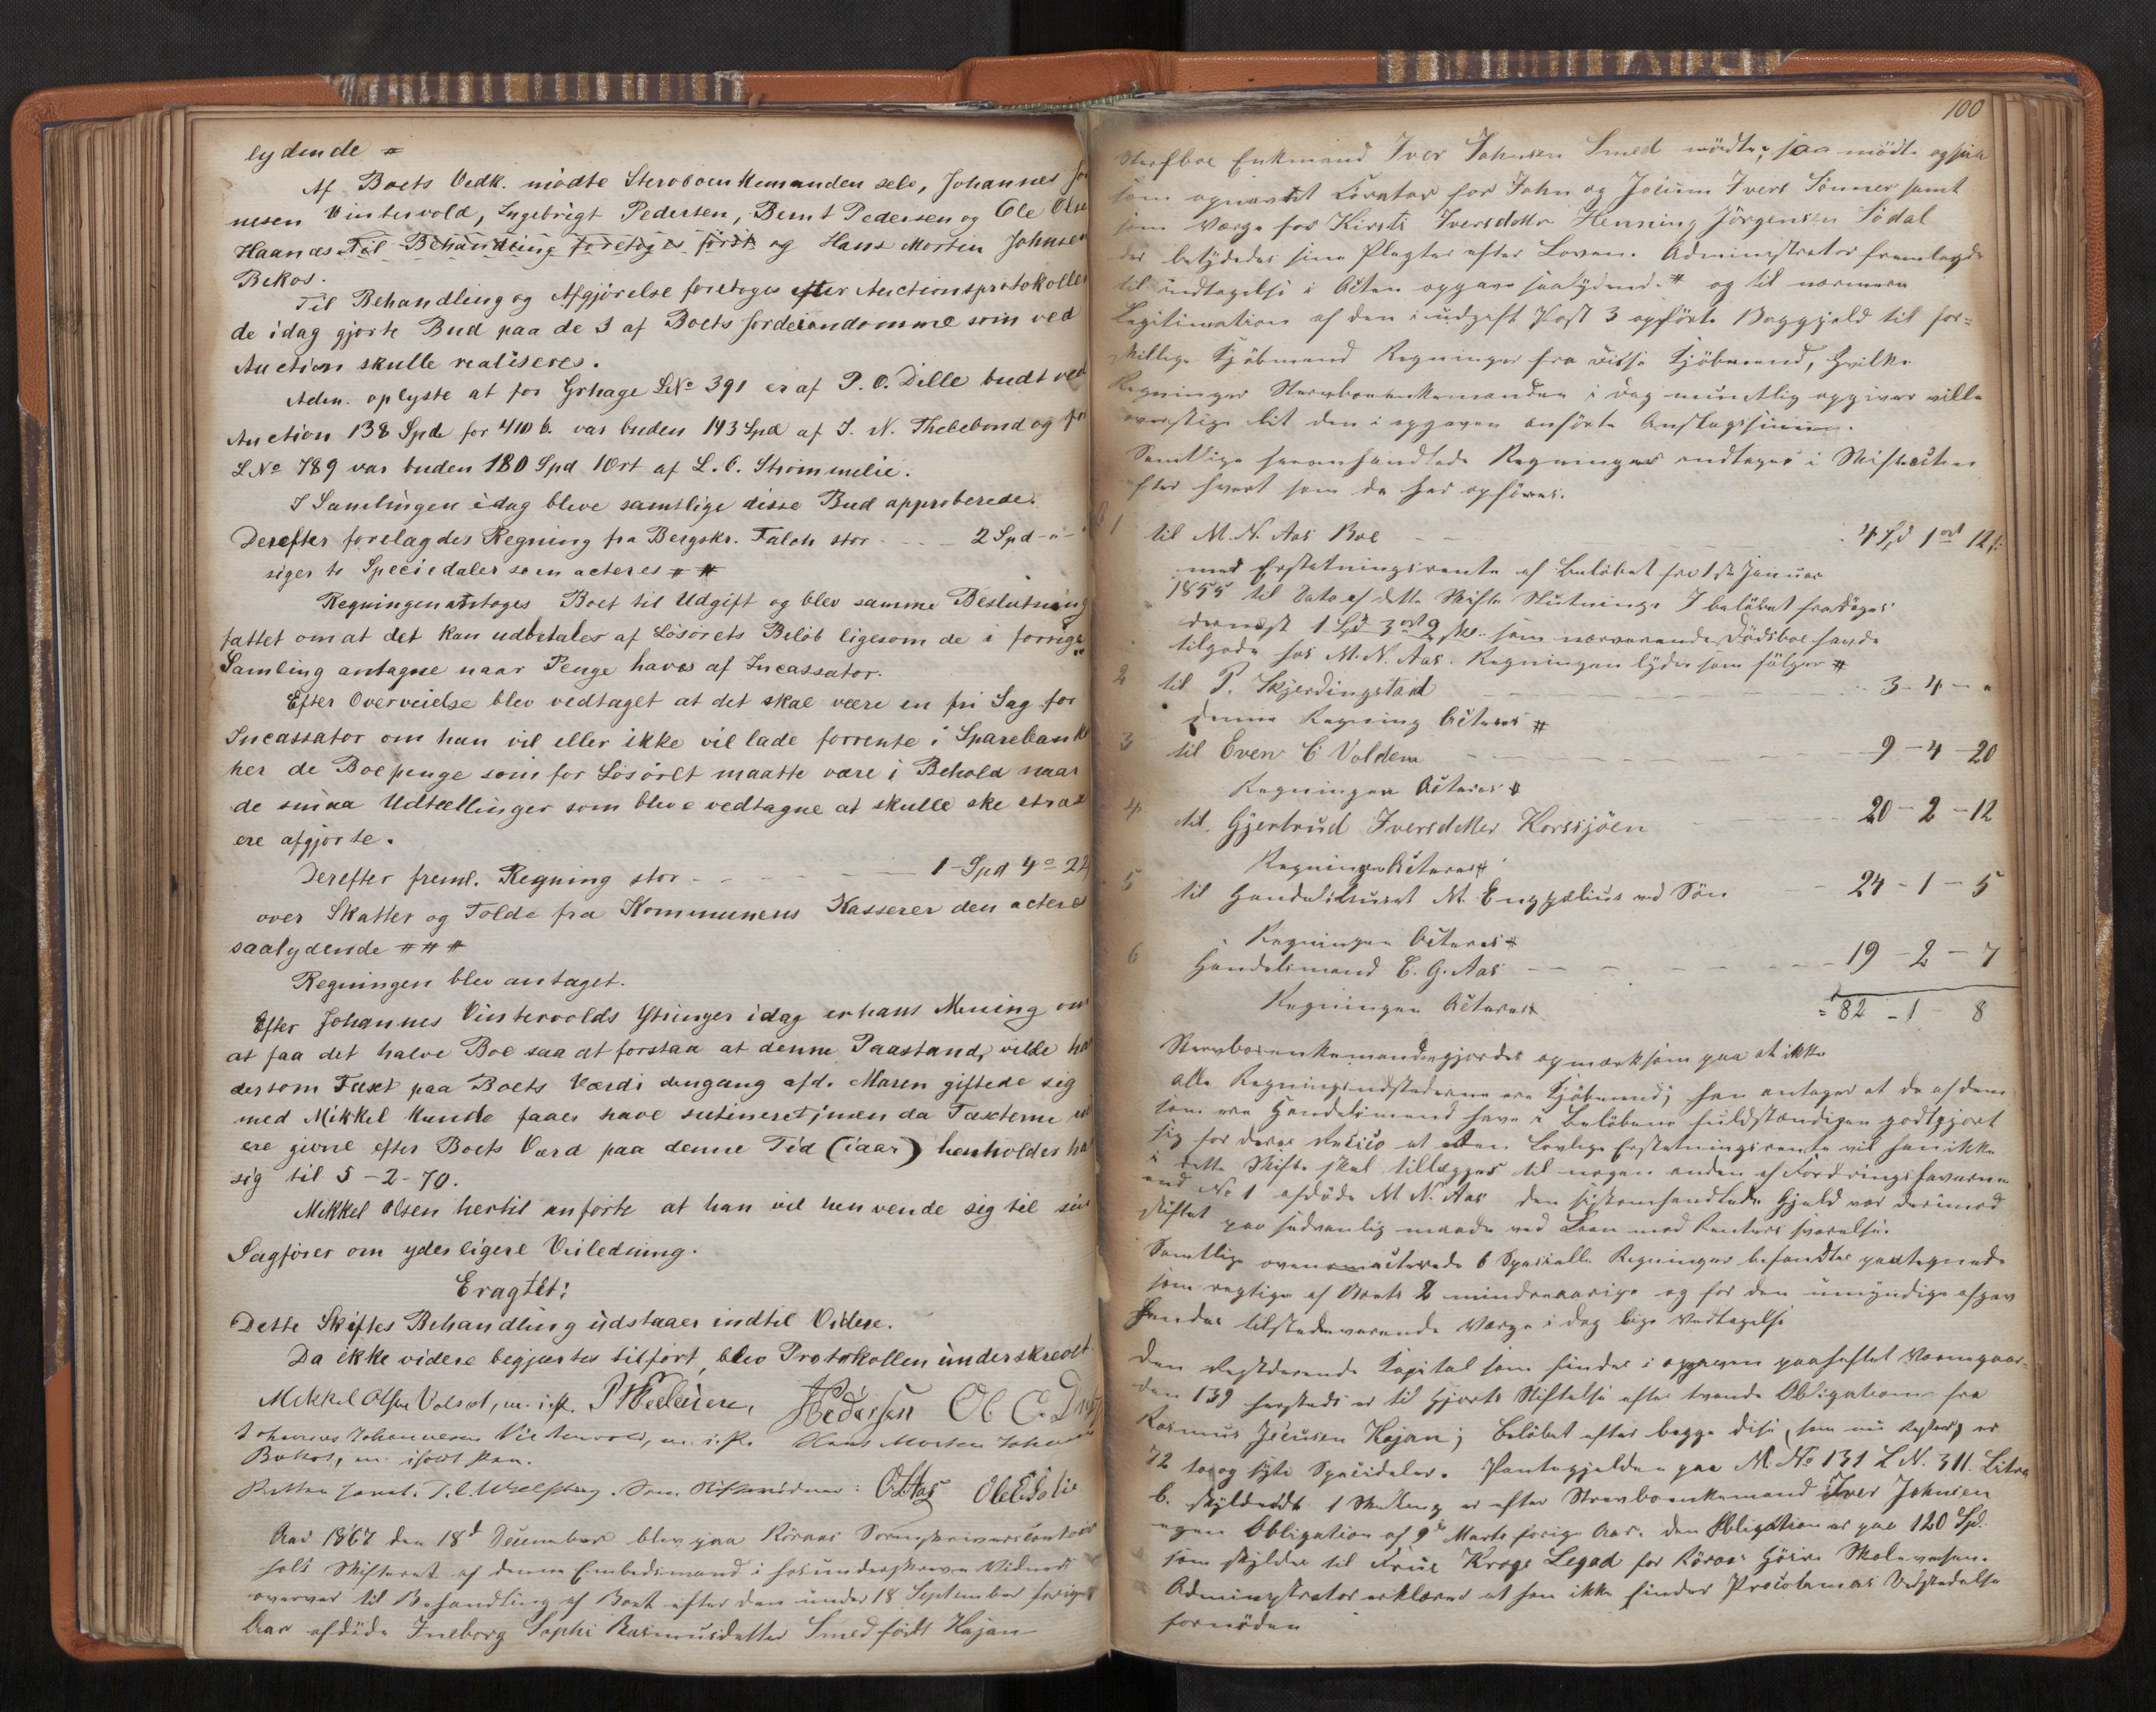 lydende #
Af Boets Vedk. mødte Sterboenkemanden selv, Johannes Jo
nesen Vintervold, Ingebrigt Pedersen, Bernt Pedersen og Ole Olse
Haanæs Til Behandling foretoges først og Hans Morten Johnsen
Bekos.
Til Behandling og Afgjørelse foretoges efter Auctionsprotokollen
de idag gjorte Bud paa de 3 af Boets Jordeiendomme som ved
Auction skulle realiseres.
Adm. oplyste at for Grhage LNo 391 er af P. O. Dille budt ved
Auction 138 Spd for 410 b. var buden 143 Spd af J. N. Thebebond og for
LNo 789 var buden 180 Spd 1Ort af L. O. Strømmelie.
I Samlingen idag bleve samtlige disse Bud approberede.
Derefter forelagdes Regning fra Bergskr. Falch stor - - - 2 Spd - " -
siger to Speciedaler som acteres # #
Regningen antoges Boet til Udgift og blev samme Beslutning
fattet om at det kan udbetales af Løsørets Beløb ligesom de i forrige
Samling antagne naar Penge haves af Incassator.
Efter Overveielse blev vedtaget at det skal være en fri Sag for
Incassator om han vil eller ikke vil lade forrente i Sparebank
her de Boepenge som for Løsøret maatte være i Behold naar
de smaa Udtællinger som bleve vedtagne at skulle ske strax
ere afgjorte.
Derefter freml. Regning stor - - - 1 Spd 4 o 22
over Skatter og Tolde fra Kommunens Kasserer den acteres
saalydende # # #
Regningen blev antaget.
Efter Johannes Vintervolds Ytringer idag er hans Mening om
at faa det halve Boe saa at forstaa at denne Paastand, vilde ha
dersom Taxt paa Boets Værdi dengang afd. Maren giftede sig
med Mikkel kunde faaes have sutineret; men da Taxterne
ere givne efter Boets Værd paa denne Tid (iaar) henholder ha
sig til 5-2-70.
Mikkel Olsen hertil anførte at han vil henvende sig til sin
Sagfører om yderligere Veiledning.
Eragtet:
Dette Skiftes Behandling udstaaer indtil Videre.
Da ikke videre begjærtes tilført, blev Protokollen underskrevet.
Mikkel Olsen Volset, m. i. p. JPedersen Ol O.
Johannes Johannesen Vintervold, m. i. P. Hans Morten Johnsen
Bekos, m. iført Pen.
Retten hævet. Som Skiftevidner: OAas
Aar 1867 den 18d December blev paa Røraas Sorenskrivercontoir
holt Skifteret af denne Embedsmand i hosunderskrevne Vidners
overvær til Behandling af Boet efter den under 18 September forige
Aar afdøde Ineborg Sophi Rasmusdatter Smed født Hajan
100
Sterfboe Enkmand Iver Johnsen Smed mødte; saa mødte ogsaa
som opnævnt Curator for John og Jocum Ivers Sønner samt
som Værge for Kirsti Iversdatter Henning Jørgensen Sødal
der betydedes sine Pligter efter Loven. Administrator fremlagde
til indtagelse i Acten opgave saalydende # og til nærmere
Legitimation af den i udgift Post 3 opførte Boggjeld til for=
skillige Kjøbmænd Regninger fra disse Kjøbmænd, hvilke
Regninger Stervboenkemanden i Dag mundtlig opgiver ville
overstige lit den i opgaven anførte Anslagssum.
Samtlige foranhandlede Regninger indtages i Skifteacten
efter hvert som de her opføres.
1 til M. N. Aas Boe - - - 4 Spd 1 ort 12 s:
med Erstatningsrente af Beløbet fra 1ste Januar
1855 til Dato af dette Skifte Slutning. I beløbet fradrages
dernæst 1 Spd 3 ort 9 sk. som nærværende Dødsboe havde
tilgode hos M. N. Aas. Regningen lyder som følger #
2 til P. Skjerdingstad - - - 3 - 4 - "
denne Regning Acteres #
3 til Even E Volden - - - 9 - 4 - 20
Regningen Acteres #
4 til Gjertrud Iversdatter Korssjøen - - - 20 - 2 - 12
Regningen Acteres #
5 til Handelshuset M. Engzelius ved Søn - - 24 - 1 - 5
Regningen Acteres #
6 Handelsmand E. G. Aas - - - 19 - 2 - 7
Regningen Acteres # = 82 - 1 - 8
Stervboenkemanden gjordes opmærksom paa at ikke
alle Regningsudstederne ere Kjøbmænd; han antager at de af dem
som ere Handelsmænd have i Beløbene fuldstændigen godtgjort
sig for deres Risico at den Lovlige Erstatningsrente vil han ikke
i dette Skifte skal tillægges til nogen anden af Fordringshaverne
end No 1 afdøde M N. Aas den sistomhandlede Gjeld var derimod
stiftet paa sædvanlig maade ved Laan med Renters svarelse.
Samtlige ovenacterede 6 Specielle Regninger befandtes paategnede
som rigtige af Boets 2 mindreaarige og for den umyndige afgav
hendes tilstedeværende Værge i dag lige Vedtagelse
Den Resterende Kapital som findes i opgaven paaheftet Vaanegaar-
den 139 hersteds er til Hjorts Stiftelse efter tvende Obligationer fra
Rasmus Jocumsen Hajan; beløbet efter begge disse, som nu rester, er
72 to og sytti Specidaler. Pantegjælden paa M. No 131 L N. 311. Litra
b. skyldsat 1 Skilling er efter Stervboenkemand Iver Johnsen
egen Obligation af 9de Marts forige Aar. den Obligation er paa 120 Spd.
som skyldes til Frue Krogs Legad for Røros Høire Skolevæsen.
Administrator erklærer at han ikke finder Proclamas Udstedelse
fornøden